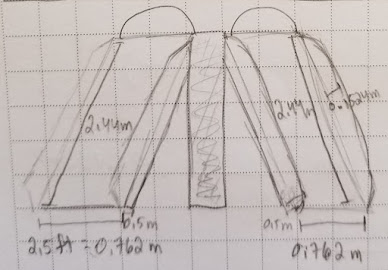 2.44m
2.44m
0.1524m
0.5m
0.5m
2.5ft = 0.762m
0.762m